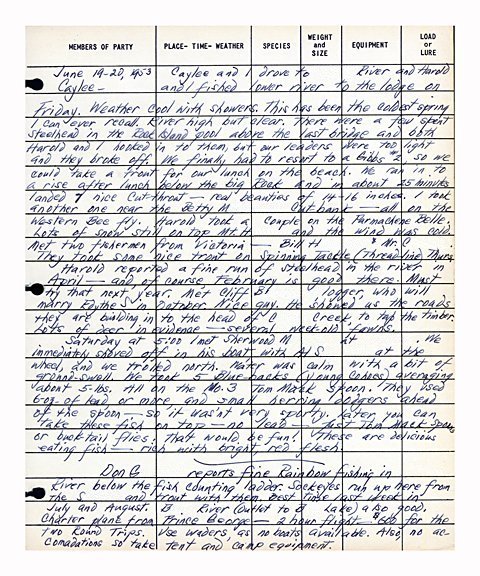 MEMBERS OF PARTY PLACE- TIME- WEATHER SPECIES WEIGHT and SIZE EQUIPMENT LOAD or LURE
June 19-20, 1953 Caylee and I drove to River and Harold
Caylee- and I fished lower river to the lodge on
Friday. Weather cool with showers. This has been the coldest spring
I can ever recall. River high but clear. There were a few spent
Steelhead in the Rock Island pool above the last bridge and both
Harold and I hooked in to them, but our leaders were too light
and they broke off. We finally had to resort to a Gibbs #2, so we
could take a trout for our lunch on the beach. We ran in to
a rise after lunch below the big Rock and in about 25 minutes
landed 7 nice Cut-throat - real beauties of 14-16 inches. I took
another one near the Betty M Cut-bank - all on the
Western Bee fly. Harold took a couple on the Parmachene Belle.
Lots of snow still on top Mt. H and the wind was cold.
Met two fishermen from Victoria - Bill H & Mr. C
They took some nice trout on Spinning Tackle (Thread-line) Thurs.
Harold reported a fine run of Steelhead in the river in
April - and of course February is good there. Must
try that next year. Met Cliff B logger who will
marry Edythe S in October. Nice guy. He showed us the roads
they are building in to the head of C Creek to tap the timber.
Lots of deer in evidence - several week-old fawns.
Saturday at 5:00 I met Sherwood M at . We
immediately shoved off in his boat with Al S at the
wheel, and we trolled north. Water was calm with a bit of
ground-swell. We took 5 Blue-backs (young Cohoes) averaging
about 5-lbs. All on the No. 3 Tom Mack Spoon. They used
6-oz. of lead or more and small herring dodgers ahead
of the spoon - so it wasn't very sporty. Later you can
take these fish on top - no lead - just Tom Mack Spoon
or buck-tail flies. That would be fun! These are delicious
eating fish - rich with bright red flesh.
Don G. reports fine Rainbow fishing in
River below the fish counting ladder. Sockeyes run up here from
the S and trout with them. Best time last week in
July and August. B River (outlet to B Lake) also good.
Charter plane from Prince George - 2 hour flight. $ for the
two Round Trips. Use waders, as no boats available. Also no ac-
comadations so take tent and camp equipment.